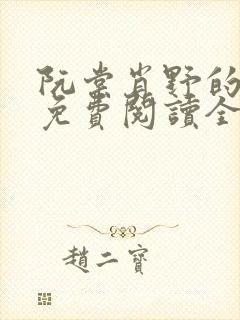 阮棠肖野的
免費閱讀全
趙二寶